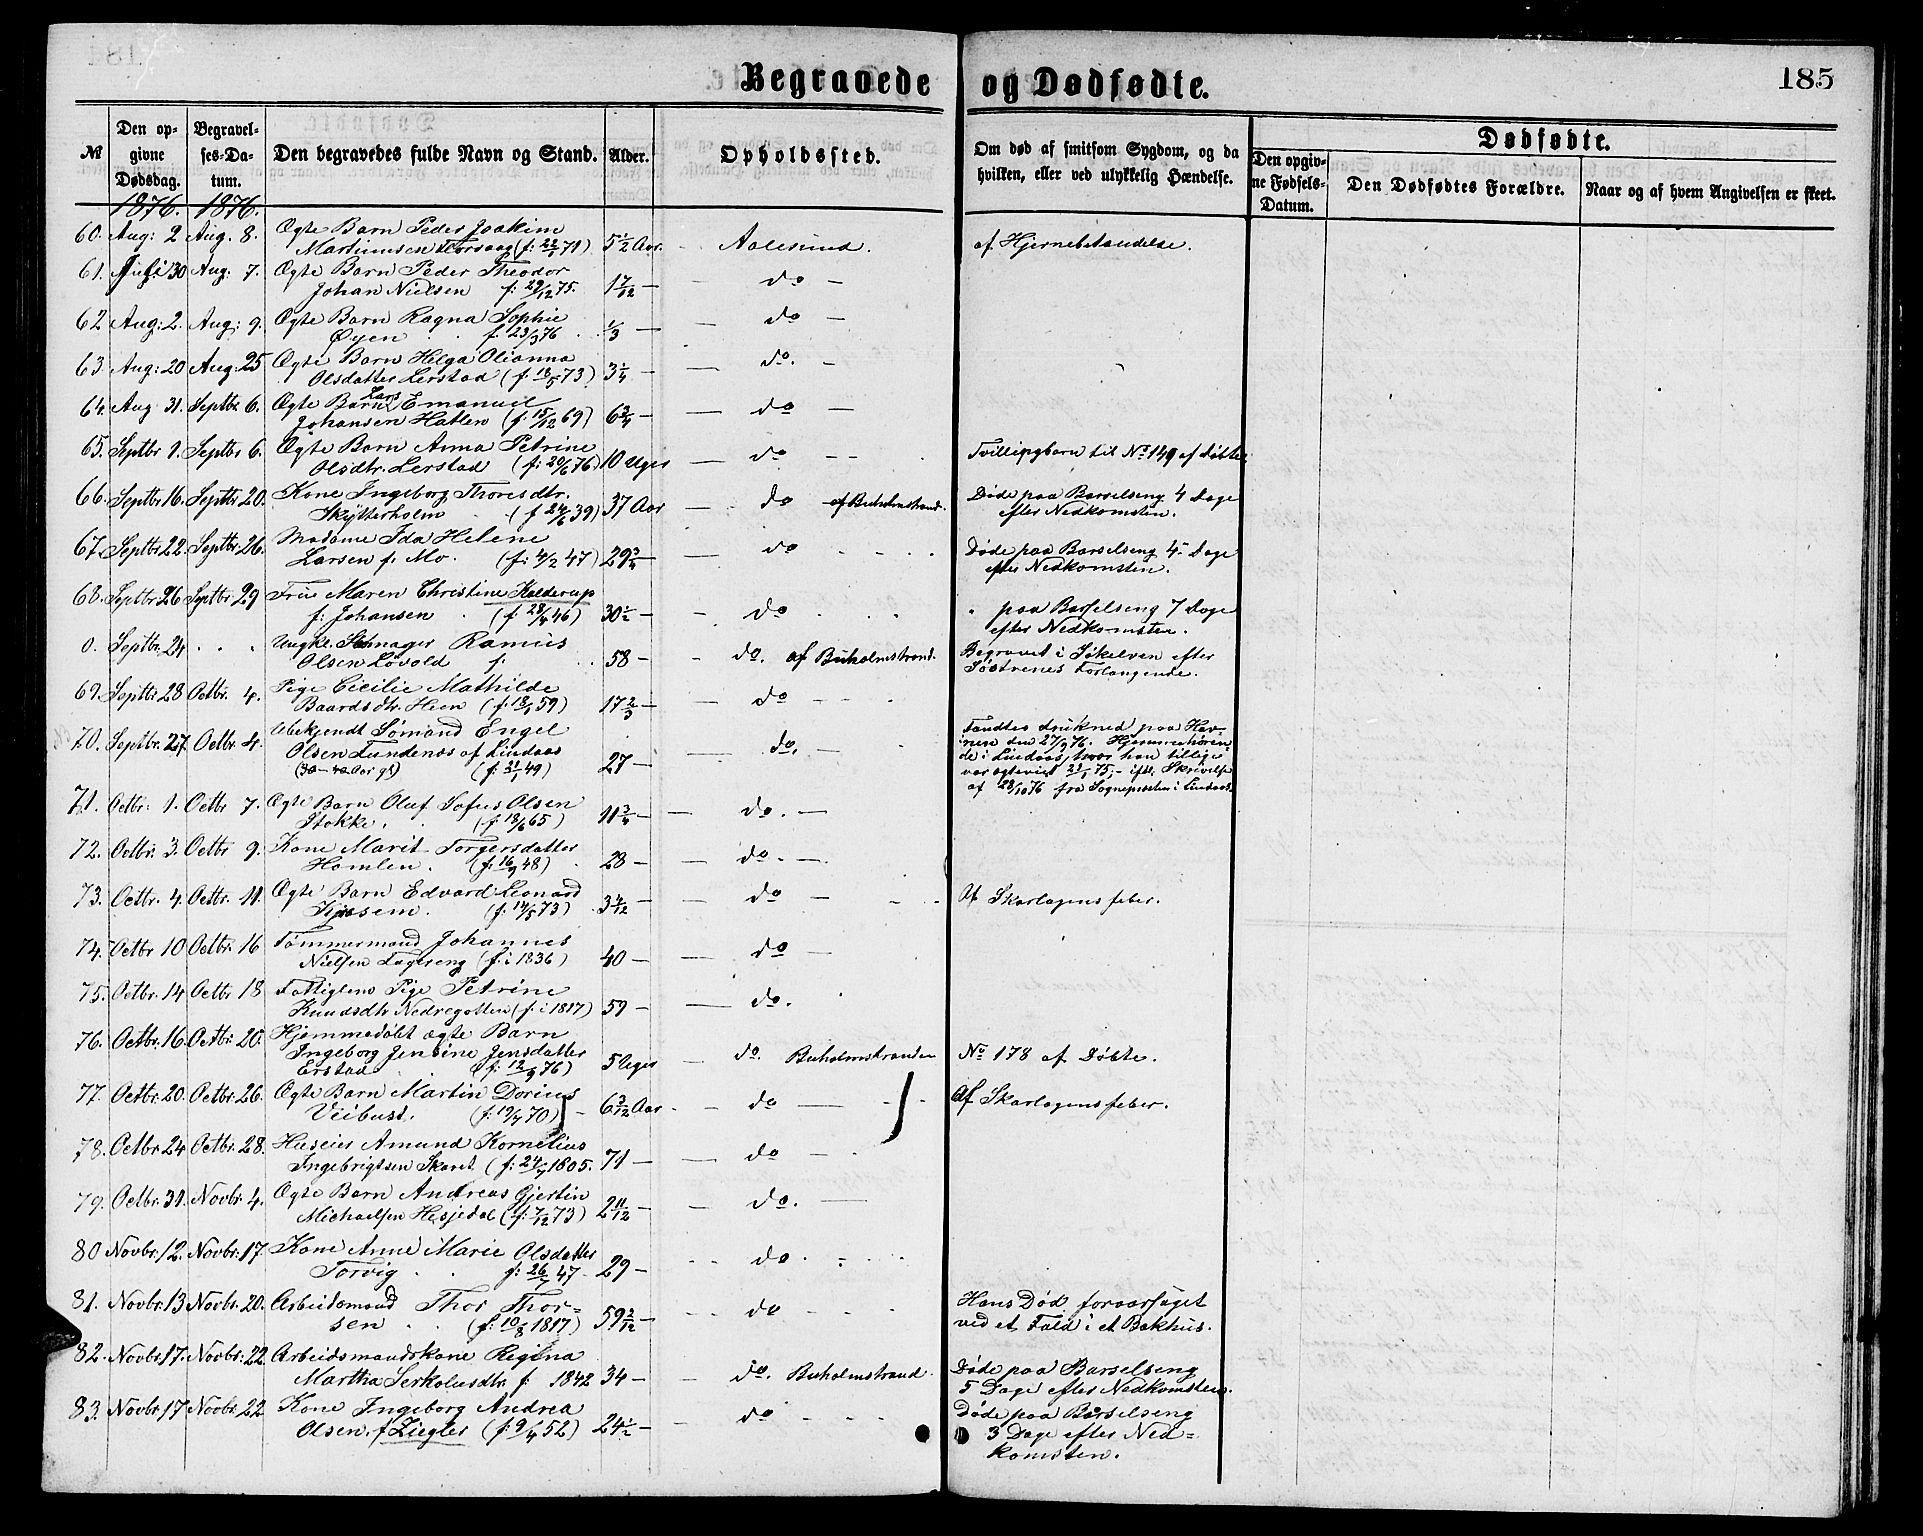 Begravede og Dødfødte.
185
№ | Den opgivne Dødsdag. | Begravelses-Datum. | Den begravedes fulde Navn og Stand. | Alder. | Opholdssted. | Om død af smitsom Sygdom, og da hvilken, eller ved ulykkelig Hændelse. | Dødfødte. Den opgivne Fødsels-Datum. | Den Dødfødtes Forældre. | Naar og af hvem Angivelsen er skeet.
1876. 1876.
60. Aug: 2 Aug. 8. Ægte Barn Peder Joakim
Martinusen (f: 71) 5½ Aar. - Aalesund. af Hjernebetændelse.
61. Juli 30 Aug: 7. Ægte Barn Peder Theodor
Johan Nielsen f: 29/12 75. 1 7/12 — do —
62 Aug: 2. Aug: 9. Ægte Barn Ragna Sophie
Øyen f. 23/3 76 ⅓ — do —
63. Aug: 20 Aug: 25 Ægte Barn Helga Olianna
Olsdatter Lerstad (f: 18/5 73) 3¼ — do. —
64. Aug 31. Septbr 6. Ægte Barn Lars Emanuel
Johansen Hatlen (f: 15/12 69) 6¾ — do —
65. Septbr 1. Septbr 6. Ægte Barn Anna Petrine
Olsdtr. Lerstad (f: 20/6 76) 10 Uger — do — Tvillingbarn til No 149 af Døbte
66. Septbr 16. Septbr 20. Kone Ingeborg Thoresdtr.
Skytterholm (f 24/6 39) 37 Aar — do af Buholmstrand. Døde paa Barselseng 4 Dage
efter Nedkomsten.
67. Septbr 22. Septbr. 26. Madame Ida Helene
Larsen f. Mo. (f: 4/2 47) 29¾ — do Døde paa Barselseng 4 Dage
efter Nedkomsten.
68. Septbr 26 Septbr 29 Frue Maren Christine Kolderup
f: Johansen (f 28/4 46) 30½ — do " paa Barselseng 7 Dage
efter Nedkomsten.
0. Septbr. 24 . . . Ungkl. Rasmus
Olsen Løvold f: 58 — do. af Buholmstrand. Begravet i Søkelven efter
Søstrenes Forlangende.
69. Septbr 28 Octbr. 4. Pige Cicilie Mathilde
Baardsdtr. Heen (f: 18/1 59) 17⅔ — do
70. Septbr. 27. Octbr. 4. Ubekjendt Sømand Engel
Olsen Tundenæs af Lindaas
(30-40 Aar gl) (f: 21/1 49) 27 — do. — Fandtes druknet paa Hav-
nen den 27/9 76. Hjemmehøren-
de i Lindaas, hvor han tillige
var ægteviet 75,- ifl. Skrivelse
af 28/10 76 fra Sognepresten i Lindaas.
71. Octbr: 1. Octbr 7. Ægte Barn Oluf Sofus Olsen
Stokke. (f: 18/6 65) 11¾ — do. —
72. Octbr. 3. Octbr 9. Kone Marit Torgersdatter
Homlen. (f: 16/9 48) 28 — do. —
73. Octbr. 4. Octbr. 11. Ægte Barn Edvard Leonard
(f: 14/5 73) 3 4/12 — do — Af Skarlagensfeber.
74. Octbr 10 Octbr. 16 Tømmermand Johannes
Nielsen Fagereng (f: i 1836) 40 — do —
75. Octbr. 14 Octbr 18 Fattiglem Pige Petrine
Knudsdtr Nedregotten (f: i 1817) 59 — do.
76. Octbr. 16. Octbr. 20. Hjemmedøbt ægte Barn
Ingeborg Jensine Jensdatter
Erstad (f: 12/9 76) 5 Uger — do. Buholmstranden No 178 af Døbte.
77. Octbr. 20. Octbr. 26. Ægte Barn Martin Dorius
Veibust. (f: 19/7 70) 6 3/12 Aar. — do — Af Skarlagensfeber.
78. Octbr 24 Octbr. 28. Huseier Amund Kornelius
Ingebrigtsen Skaret (f: 24/7 1805. 71 — do —
79. Octbr. 31. Novbr. 4. Ægte Barn Andreas Gjertin
Michaelsen Hesjedal (f: 7/12 73) 2 11/12 — do. —
80 Novbr. 12. Novbr. 17. Kone Anne Marie Olsdatter
Torvig f: 26/7 47. 29 — do
81. Novbr. 13 Novbr. 20. Arbeidsmand Thor Thor-
sen (f: 10/8 1817) 59 2/12 — do Hans Død foraarsaget
ved et Fald i et Bakhus.
82. Novbr. 17. Novbr. 22. Arbeidsmandskone Regina
Martha Serkolusdtr. f 1842 34 — do. Buholmstrand. Døde paa Barselseng
5 Dage efter Nedkomsten.
83. Novbr. 17 Novbr. 22 Kone Ingeborg Andrea
Olsen. f Ziegler (f: 9/4 52) 24½ — do Døde paa Barselseng
3 Dage efter Ned-
komsten.